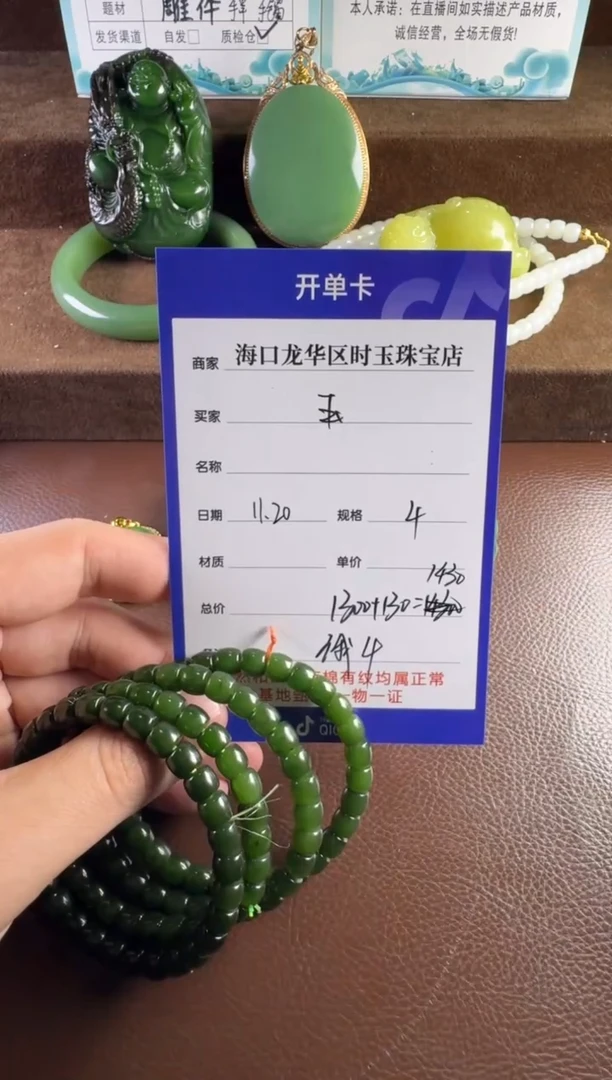 题材 雕件 手镯
发货渠道 自发□ 质检仓☑
本人承诺：在直播间如实描述产品材质，
诚信经营，全场无假货！
开单卡
商家 海口龙华区时玉珠宝店
买家
名称
日期 11.20 规格 4
材质 单价
1430
总价 1300+130=
俄4
棉有纹均属正常
基地 一物一证